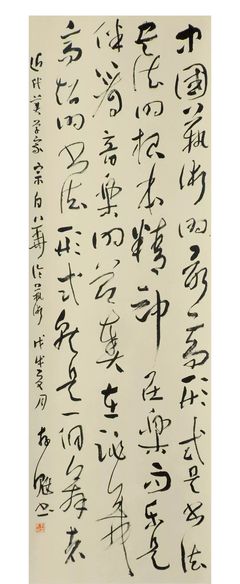 中國藝術的最高形式是書法
書法的根本精神在樂而樂是
伴着音樂的節奏在跳舞
高超的書法形式就是一個舞者
近代美学家宗白華论藝術 戊戌夏月